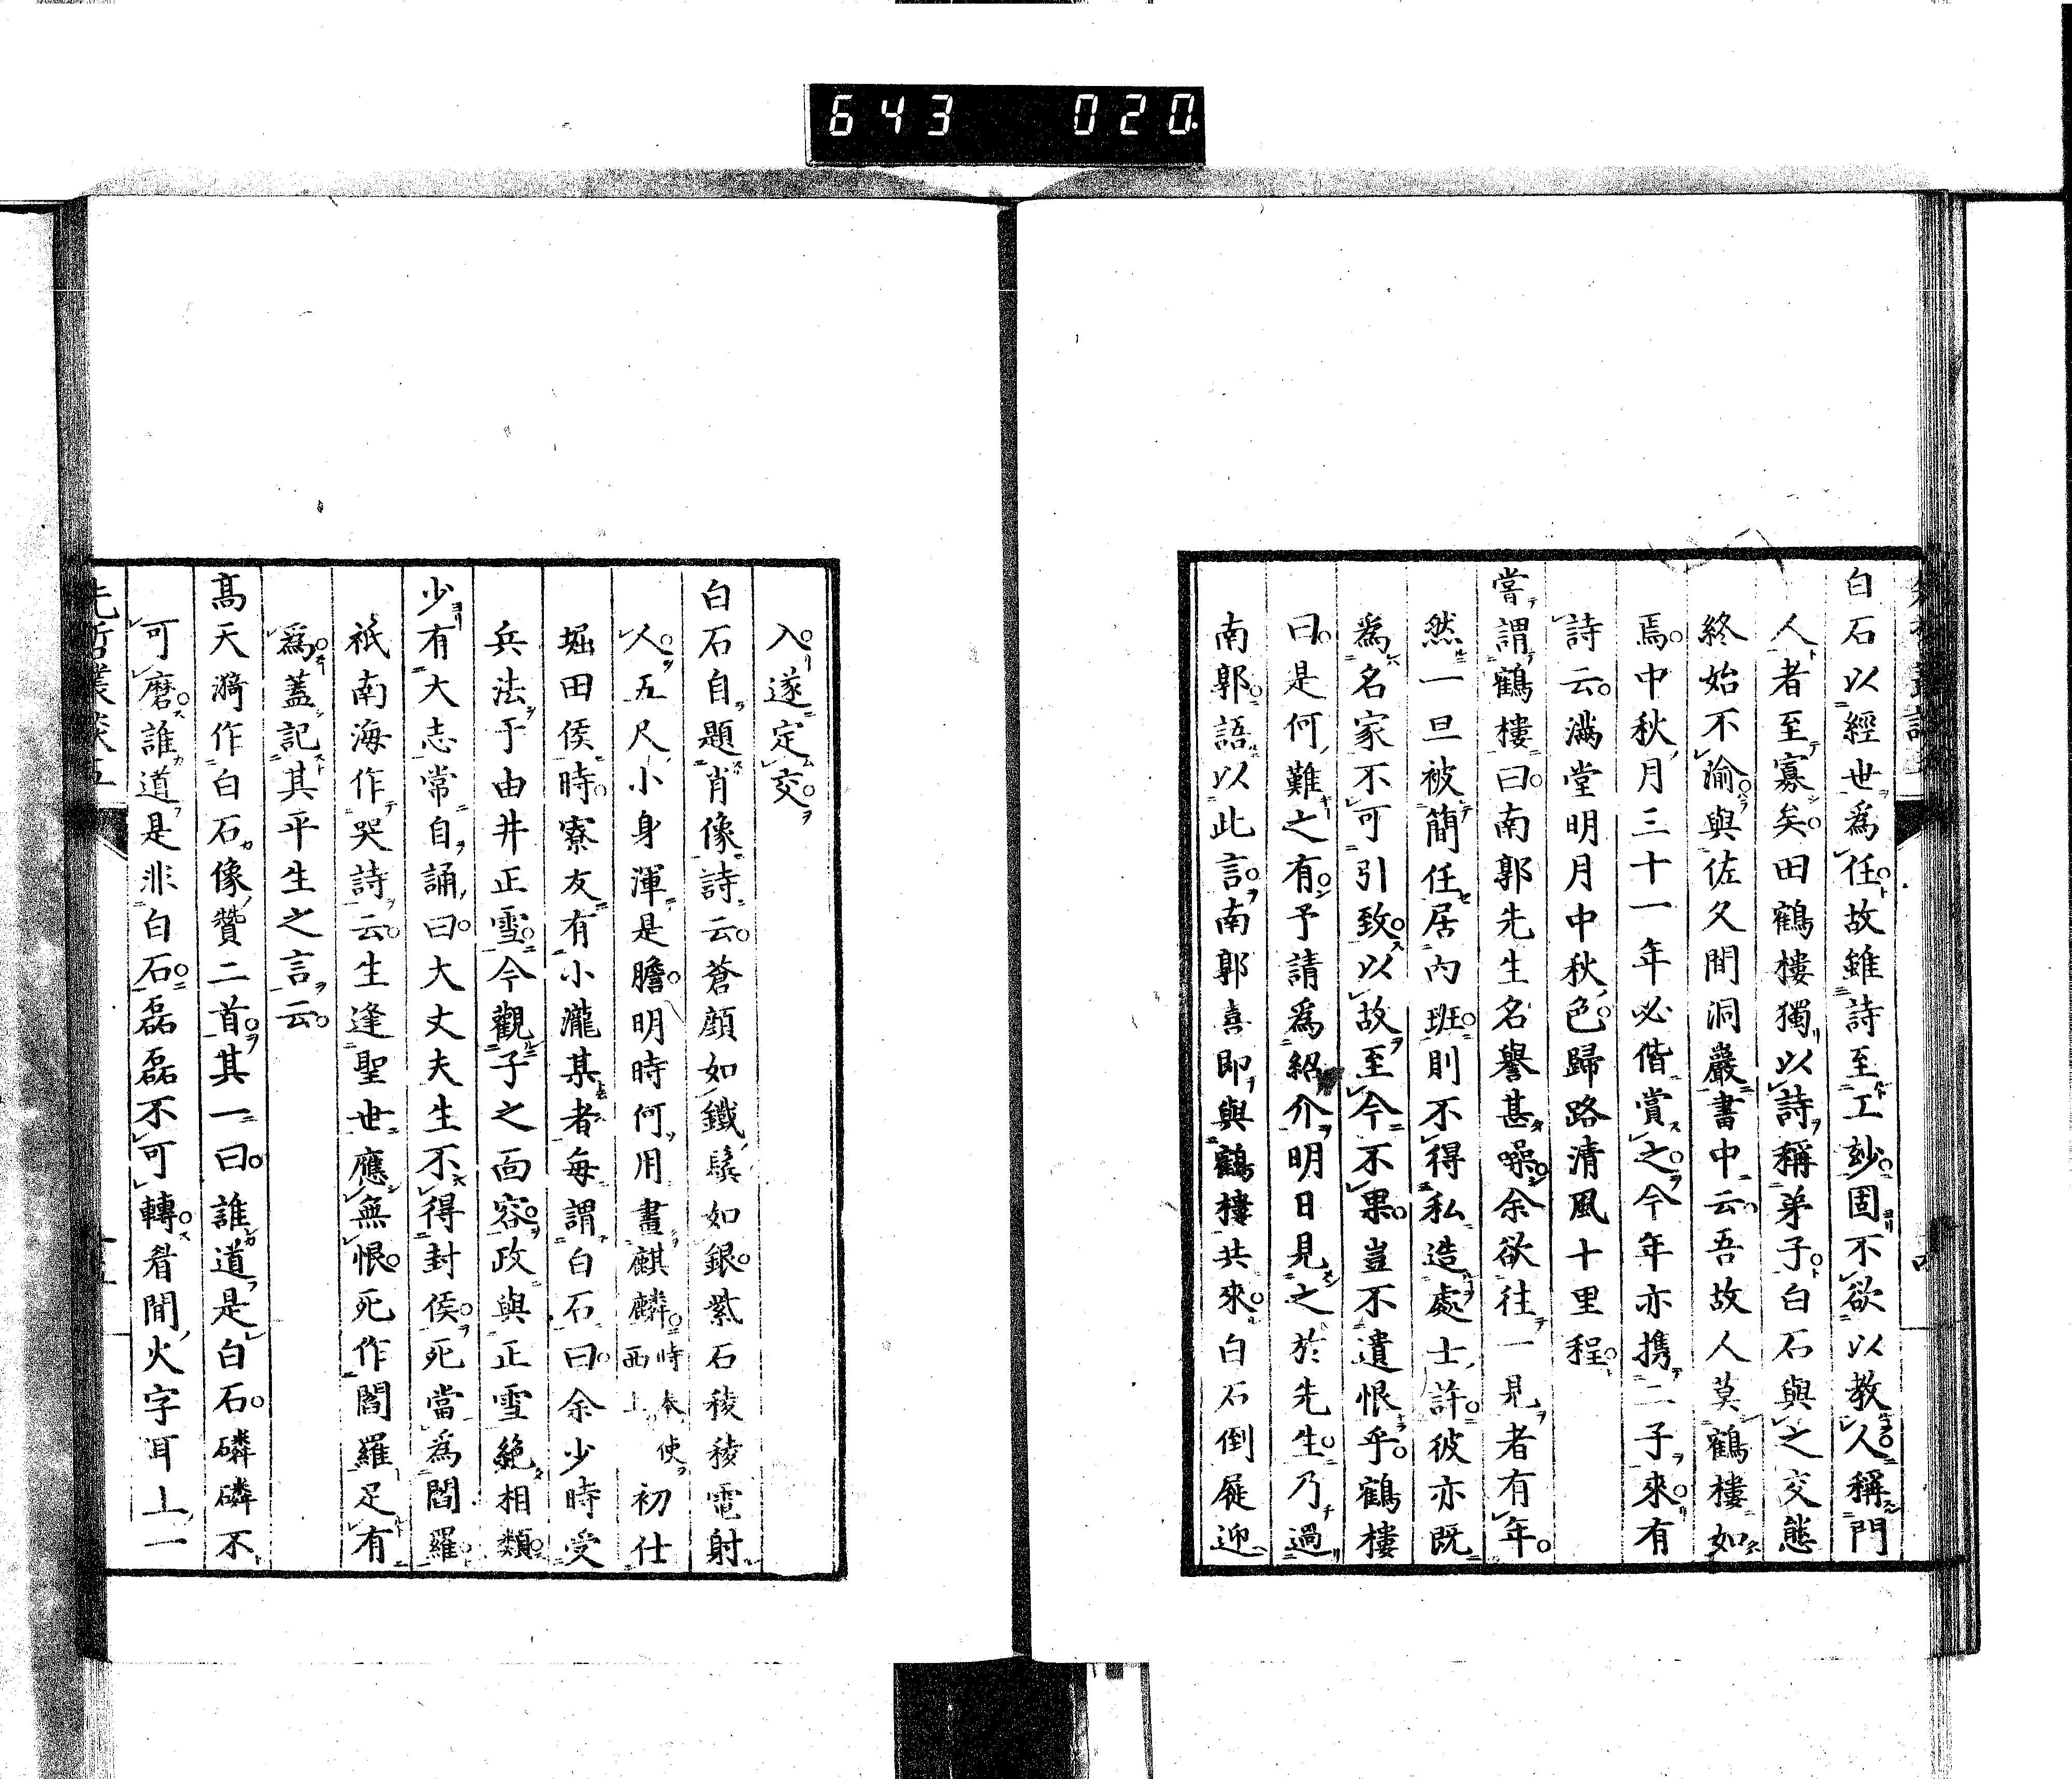 643 020
白石以經世爲任故雖詩至工玅固不欲以教人稱門
人者至寡矣田鶴樓獨以詩稱弟子白石與之交態
終始不渝與佐久間洞巖書中云吾故人莫鶴樓如
焉中秋月三十一年必偕賞之今年亦携二子來有
詩云滿堂明月中秋色歸路清風十里程
嘗謂鶴樓曰南郭先生名譽甚噪余欲往一見者有年
然一旦被簡任居內班則不得私造處士許彼亦既
爲名家不可引致以故至今不果豈不遺恨乎鶴樓
曰是何難之有予請爲紹介明日見之於先生乃過
南郭語以此言南郭喜即與鶴樓共來白石倒屣迎
入遂定交
白石自題肖像詩云蒼顏如鐵鬢如銀紫石稜稜電射
人五尺小身渾是膽明時何用畫麒麟時奉使西上初仕
堀田侯時寮友有小瀧某者每謂白石曰余少時受
兵法于由井正雪今觀子之面容政與正雪絶相類
少有大志常自誦曰大丈夫生不得封侯死當爲閻羅
祇南海作哭詩云生逢聖世應無恨死作閻羅足有
爲蓋記其平生之言云
高天漪作白石像贊二首其一曰誰道是白石磷磷不
可磨誰道是非白石磊磊不可轉看間火字耳上一
先哲叢談五